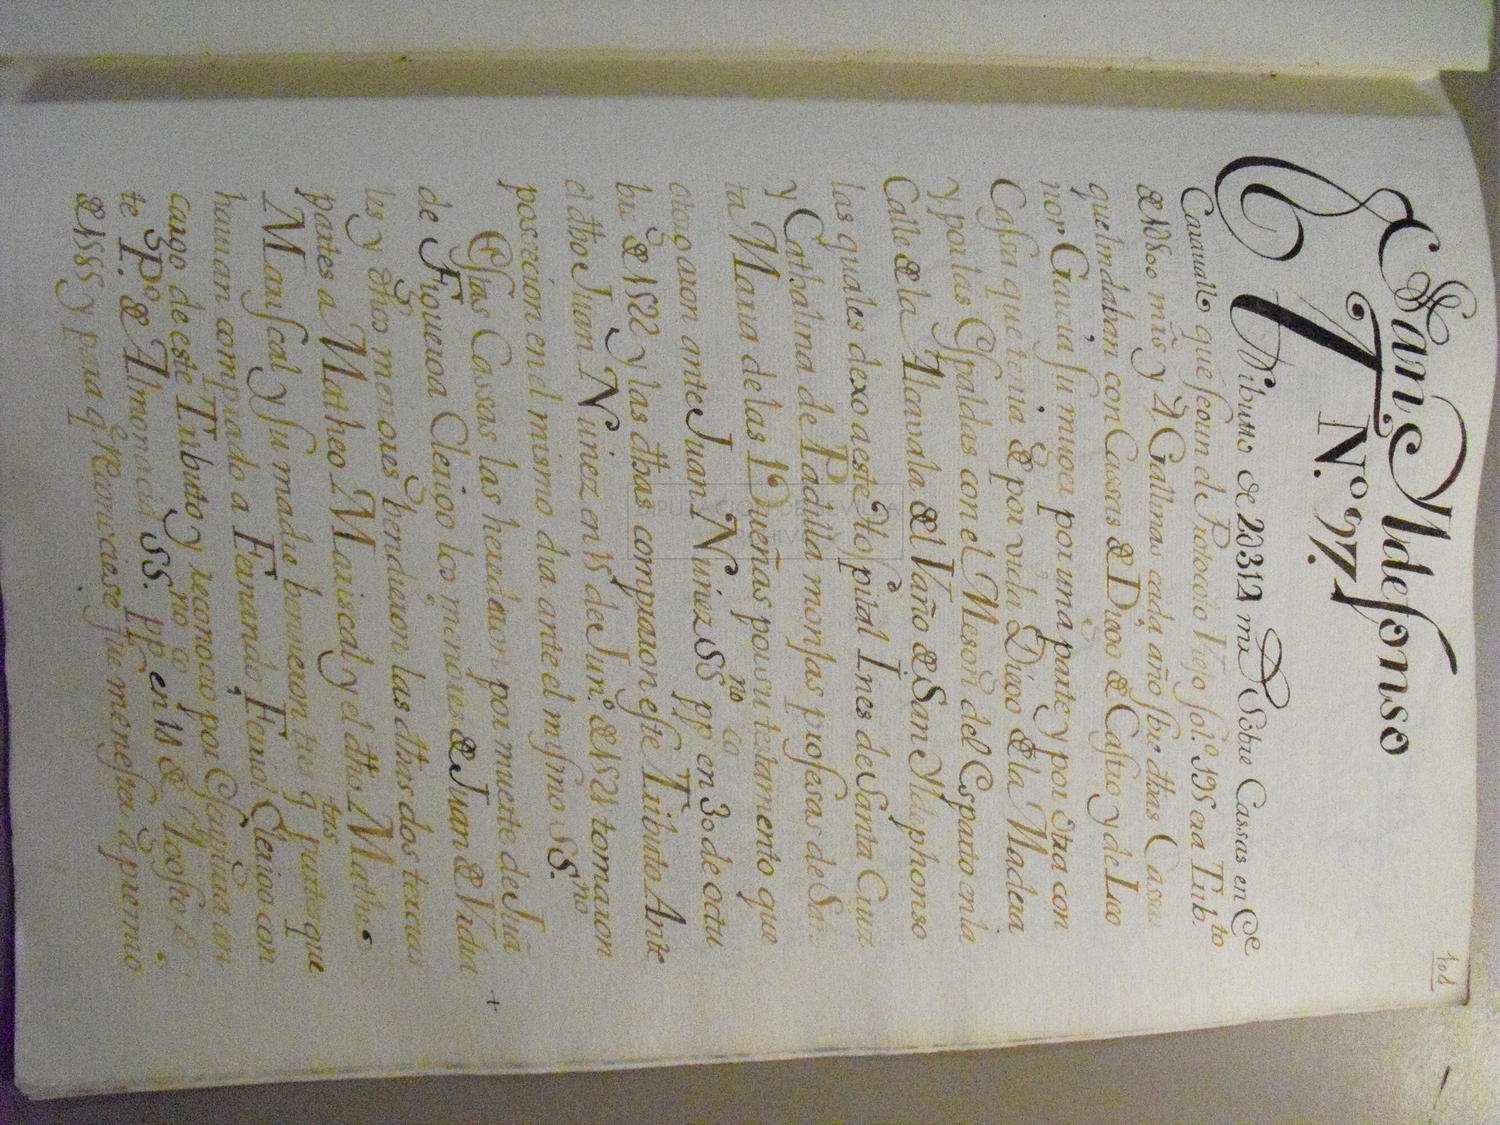 101
San Yldefonso
N.º 27.
Tributto de 20312 mrs. Sobre Cassas en Ce
Carauallo que segun el Protocolo Viejo fol.º 195 era Trib.to
de 1080o mrs. y 4 Gallinas cada año sbre dhas Cassas
que lindaban con Cassas de Diego de Castro y de Leo
nor Garcia su muger por una parte y por otra con
Cassa que tenia de por vida Diego de la Madera
y por las Espaldas con el Meson del Esparto en la
Calle de la Alcavala del Vaño de San Yldephonso
las quales dexo a este Hospital Ines de Santa Cruz
y Cathalina de Padilla monjas profesas de San
ta Maria de las Dueñas por su testamento que
otorgaron ante Juan Nuñez SS.no pp.co en 30 de Octu
bre de 1522 y las dhas compraron este Tributo Ante
el dho Juan Nuñez en 15 de Jun.º de 1521 tomaron
posecion en el mismo dia ante el mismo SS.no
Estas Cassas las heredaron por muerte de Juā
de Figueroa Clerigo los menores de Juan de Vidua
les y dhos menores benduieron las dhas dos tercias
partes a Matheo Mariscal y el dho Matheo
Mariscal y su madre bennieron tres q.tas partes que
hauian compiado a Fernando Ferrial Clerigo con
cargo de este Tributo y reconocio por Escriptura an
te P.º de Almonacid SS.no pp.co en 18 de Agosto
de 1555 y para q reconociese fue menester apremio